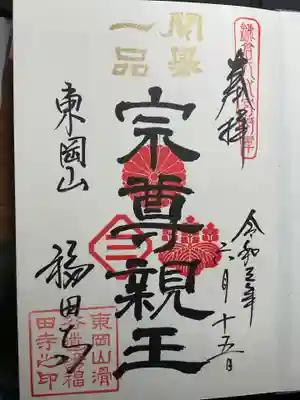 奉拝
令和五年
六月十五日
開基
一品
宗尊親王
東岡山
福田寺
東岡山滑
田寺之印